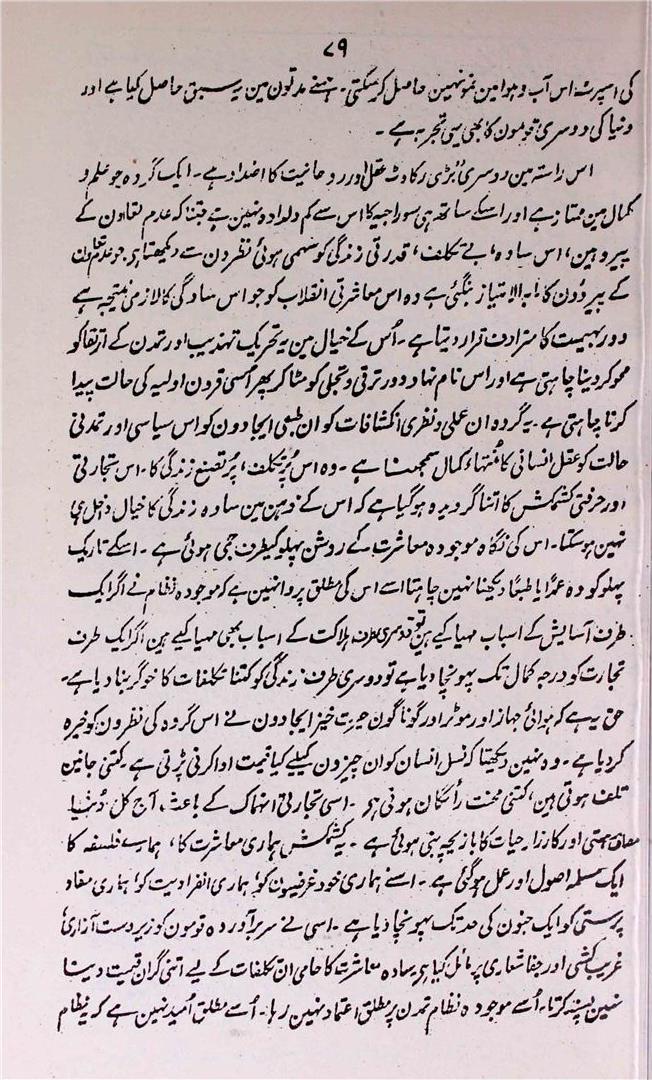 ۷۹
کی اسپرٹ اس آب و ہوا مین نمو نہین حاصل کر سکتی۔ ہمنے مدتون مین یہ سبق حاصل کیا ہے اور
دنیا کی دوسری قومون کا بھی یہی تجربہ ہے۔
اس راستہ مین دوسری بڑی رکاوٹ عقل اور روحانیت کا اضداد ہے۔ ایک گروہ جو علم و
کمال مین ممتاز ہے اور اسکے ساتھ ہی سوراجیہ کا اس سے کم دلدادہ نہین ہے جتنا کہ عدم تعاون کے
پیرو ہین، اس سادہ، بے تکلف، قدرتی زندگی کو سہمی ہوئی نظرون سے دیکھتا ہے جو عدم تعاون
کے پیرؤون کا مابہ الامتیاز بنگئی ہے وہ اس معاشرتی انقلاب کو جو اس سادگی کا لازمی نتیجہ ہے
دور بہیمیت کا مترادف قرار دیتا ہے۔ اُس کے خیال مین یہ تحریک تہذیب اور تمدن کے ارتقا کو
محو کر دینا چاہتی ہے اور اس نام نہاد دور ترقی و تجلی کو مٹا کر پھر اُسی قرون اولیہ کی حالت پیدا
کرنا چاہتی ہے۔ یہ گروہ ان علمی و نظری انکشافات کو ان طبعی ایجادون کو اس سیاسی اور تمدنی
حالت کو عقل انسانی کا مُنتہاء کمال سمجھتا ہے۔ وہ اس پُر تکلف، پُر تصنع زندگی کا۔ اس تجارتی
اور حرفتی کشمکش کا اتنا گرویدہ ہو گیا ہے کہ اس کے ذہن مین سادہ زندگی کا خیال داخل ہی
نہین ہو سکتا۔ اس کی نگاہ موجودہ معاشرت کے روشن پہلو کیطرف جمی ہوئی ہے۔ اسکے تاریک
پہلو کو وہ عمداً یا طبعاً دیکھنا نہین چاہتا اسے اس کی مطلق پروا نہین ہے کہ موجودہ نظام نے اگر ایک
طرف آسایش کے اسباب مہیا کیے ہین تو دوسری طرف ہلاکت کے اسباب بھی مہیا کیے ہین اگر ایک طرف
تجارت کو درجہ کمال تک پہونچا دیا ہے تو دوسری طرف زندگی کو کتنا تکلفات کا خوگر بنا دیا ہے۔
حق یہ ہے کہ ہوائی جہاز اور موٹر اور گوناگون حیرت خیز ایجادون نے اس گروہ کی نظرون کو خیرہ
کر دیا ہے۔ وہ نہین دیکھتا کہ نسل انسان کو ان چیزون کیلیے کیا قیمت ادا کرنی پڑتی ہے، کتنی جانین
تلف ہوتی ہین، کتنی محنت رائگان ہوتی ہے۔ اسی تجارتی انہماک کے باعث، آج کل دُنیا
ہستی اور کارزار حیات کا بازیچہ بنی ہوئی ہے۔ یہ کشمکش ہماری معاشرت کا، ہمارے فلسفہ کا
ایک مسلمہ اصول اور عمل ہو گئی ہے۔ اسنے ہماری خود غرضیون کو، ہماری انفرادیت کو، ہماری مفاد
پرستی کو ایک جنون کی حد تک پہونچا دیا ہے۔ اسی نے سربرآوردہ قومون کو زیردست آزاری،
غریب کشی اور جفا شعاری پر مائل کیا ہے سادہ معاشرت کا حامی ان تکلفات کے لیے اتنی گران قیمت دینا
نہین پسند کرتا۔ اُسے موجودہ نظام تمدن پر مطلق اعتماد نہین رہا۔ اُسے مطلق اُمید نہین ہے کہ نظام